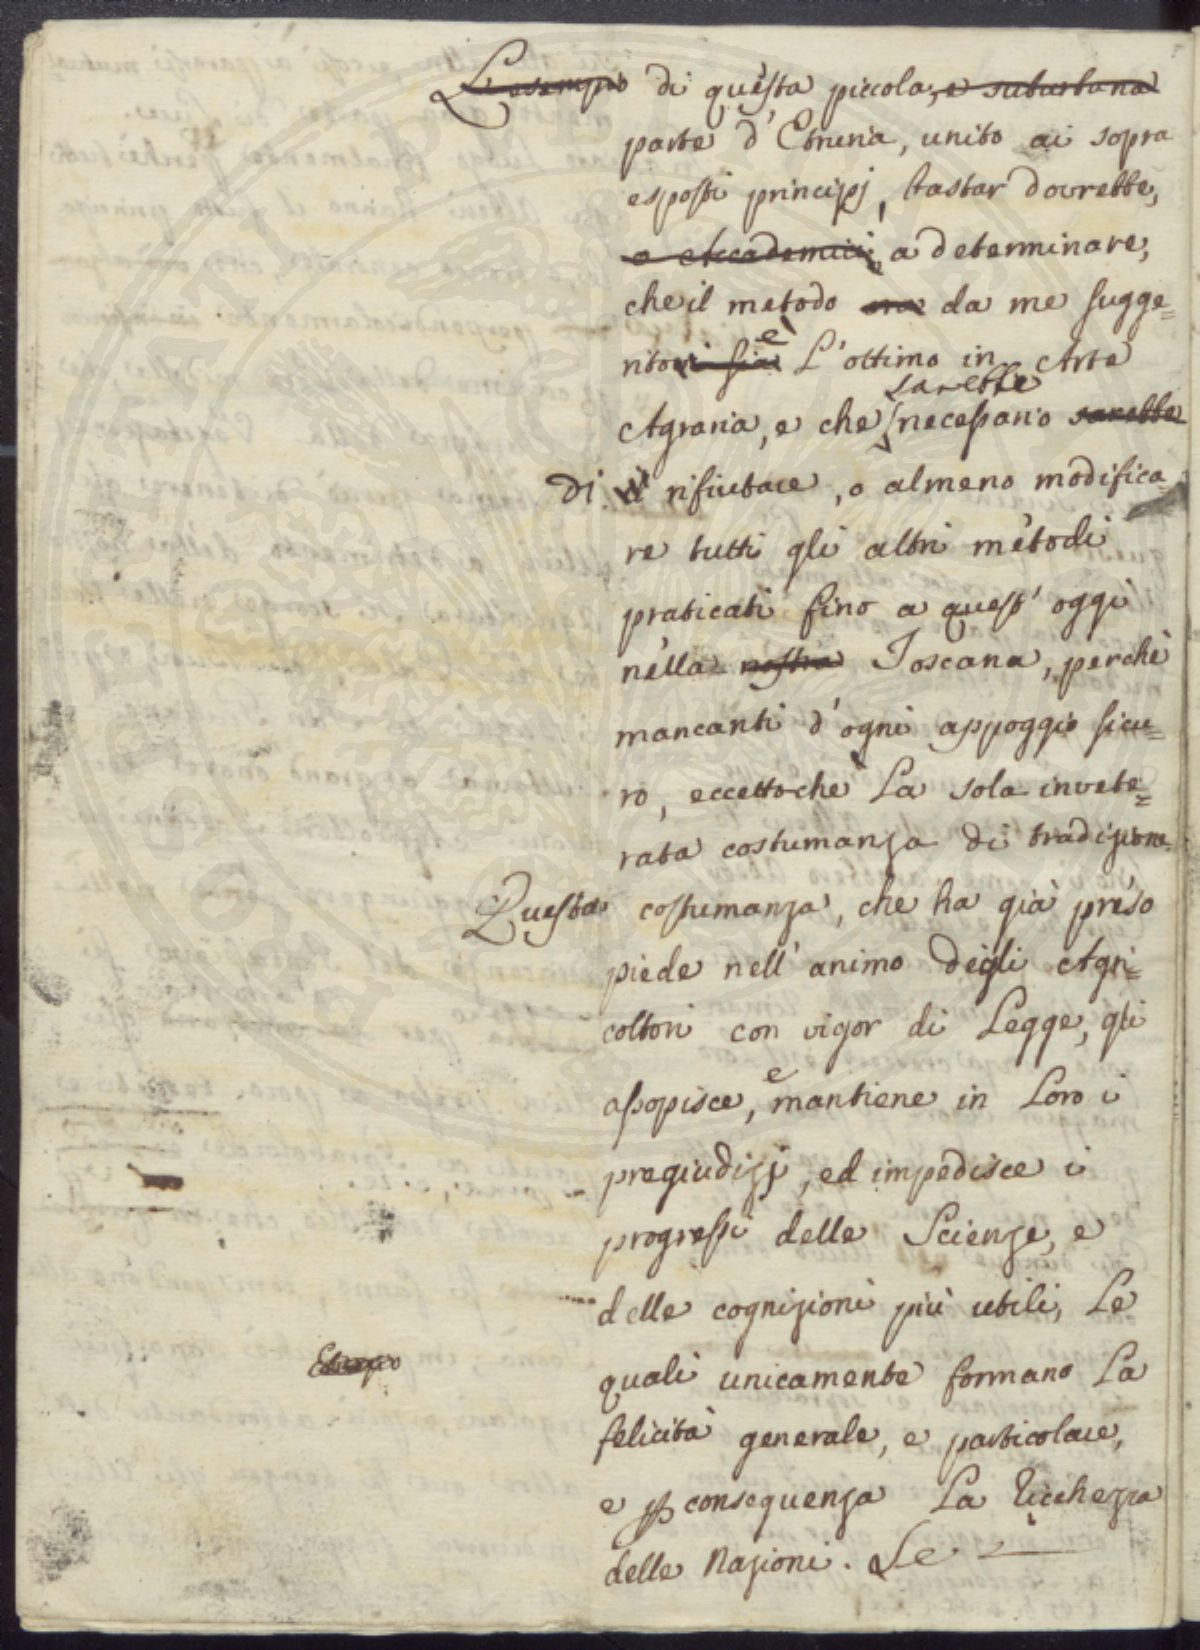 L'esempio di questa piccola, e suburbana
parte d'Etruria, unito ai sopra
esposti principj, bastar dovrebbe,
o Accademici, a determinare,
che il metodo ora da me sugge=
ritovi sia è L'ottimo in Arte
sarebbe
Agraria, e che necessario sarebbe
di rifiutare, o almeno modifica=
re tutti gli altri metodi
praticati fino a quest'oggi
nella nostra Toscana, perchè
mancanti d'ogni appoggio sicu=
ro, eccettochè La sola invete=
rata costumanza di tradizione.
Questa costumanza, che ha già preso
piede nell'animo degli Agri=
coltori con vigor di Legge, gli
assopisce, e mantiene in Loro i
pregiudizj, ed impedisce i
progressi delle Scienze, e
delle cognizioni più utili, Le
quali unicamente formano La
felicità generale, e particolare,
e p conseguenza La ricchezza
delle Nazioni. Le